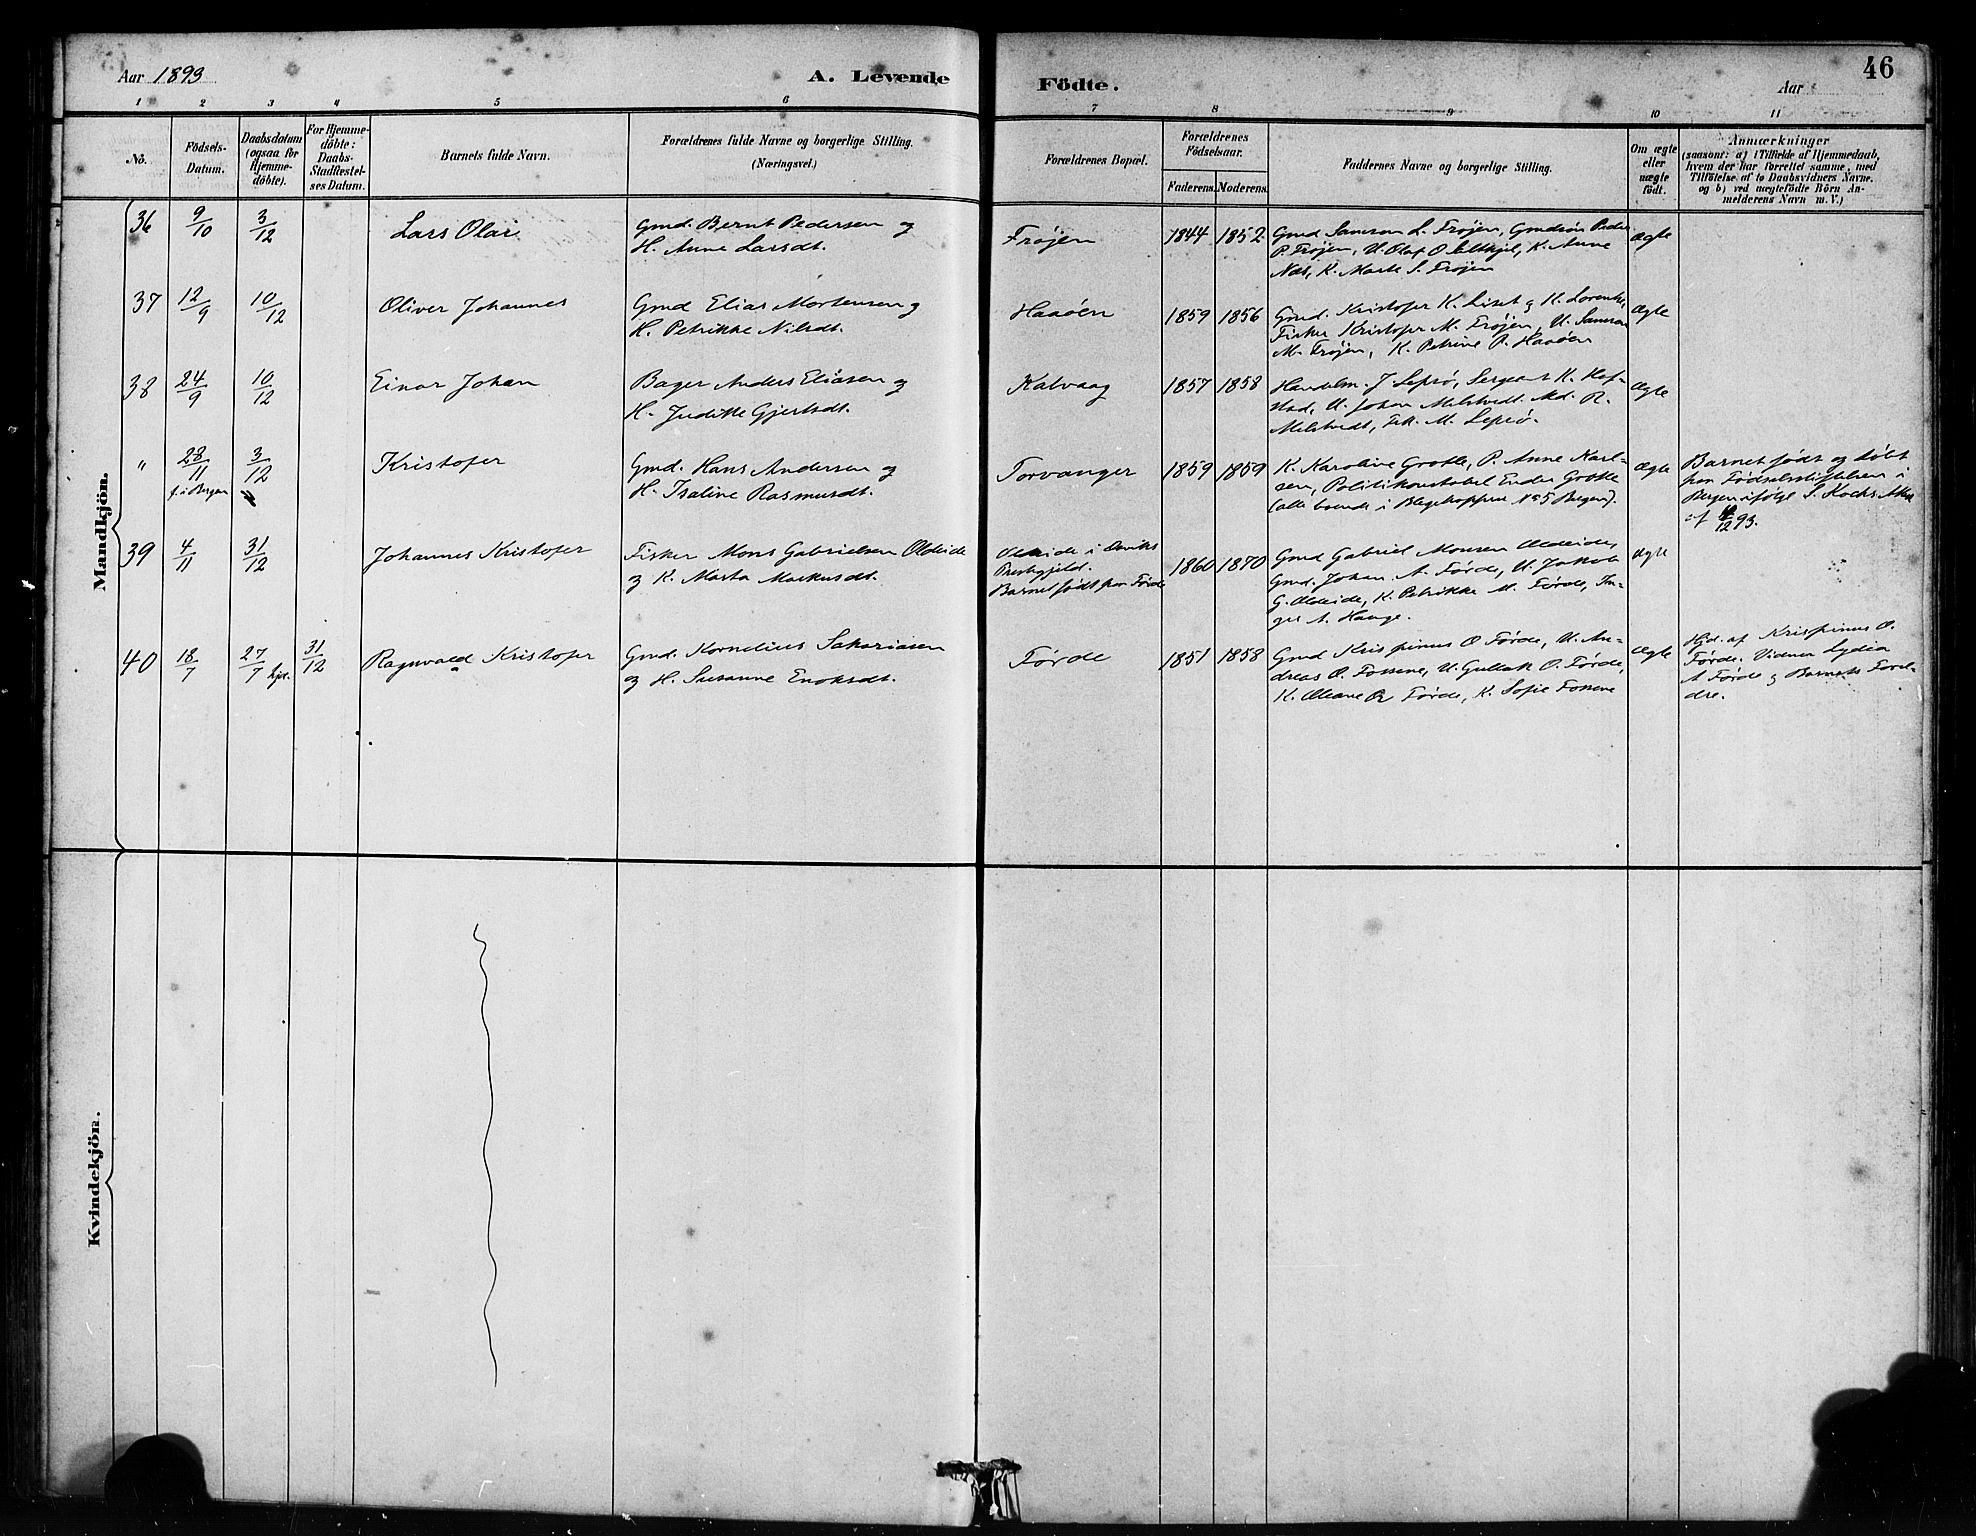 Aar 1893
A. Levende Födte.
Aar
46
1 2 3 4 5 6 7 8 9 10 11
No.
Födsels-
Datum.
Daabsdatum
(ogsaa for
Hjemme-
döbte).
For Hjemme-
döbte:
Daabs-
Stadfæstel-
ses Datum.
Barnets fulde Navn.
Forældrenes fulde Navne og borgerlige Stilling.
(Næringsvei.)
Forældrenes Bopæl.
Forældrenes
Födselsaar.
Faderens. Moderens.
Faddernes Navne og borgerlige Stilling.
Om ægte
eller
uægte
födt.
Anmærkninger
(saasom: a) i Tilfælde af Hjemmedaab,
hvem der har forrettet samme, med
Tilföielse af to Daabsvidners Navne,
og b) ved uægtefödte Börn An-
melderens Navn m. V.)
Mandkjön.
36 9/10 3/12 Lars Olai
Gmd. Bernt Pedersen og
H. Anne Larsdt.
Frøjen 1844 1852
Gmd Samson L. Frøjen, Gmdsøn Peder
P. Frøjen, U. Olaf O. K. Anne
Nas, K. Marte S. Frøjen
ægte
37 12/9 10/12 Oliver Johannes
Gmd Elias Mortensen og
H. Petrikke Nilsdt.
Haaöen 1859 1856
Gmd. Kristofer K. Liset og H. Lorentse,
Fisker Kristofer M. Frøjen, U. Samson
M. Frøjen, K. Petrine P. Haaöen
ægte
38 24/9 10/12 Einar Johan
Bager Anders Eliasen og
H. Juditte Gjertsdt.
Kalvaag 1857 1858
Handelsm. J Seprø, Sergeant K. Haf-
stad, U. Johan Melstvedt. Md. R.
Melstvedt, Frk. M. Seprø.
ægte
" 28/11 f. i Bergen 3/12 Kristofer
Gmd. Hans Andersen og
H. Isaline Rasmusdt.
Torvanger 1859 1859
K. Karoline Grotle, P. Anne Karl-
sen, Politikonstabel Ender Grotle
(alle boende i Blegehoppen No 5 Bergen).
ægte
Barnet født og døbt
paa Fødselsstiftelsen i
Bergen ifølge S. Kochs Attest
af 4/12 93.
39 4/11 31/12 Johannes Kristofer
Fisker Mons Gabrielsen Oldeide
og K. Marta Markusdt.
Oldeide i Daviks
Prestegjeld.
Barnet født paa Førde
1860 1870
Gmd Gabriel Monsen Oldeide,
Gmd. Johan A. Førde, U. Jakob
G. Oldeide, K. Petrikke M. Førde, In-
ger A. Hauge.
ægte
40 18/7 27/7 hjd. 31/12 Ragnvald Kristofer
Gmd. Kornelius Sakariasen
og H. Susanne Enoksdt.
Førde 1851 1858
Gmd Krispinus O Førde, U. An-
dreas O. Fossene, U. Gullak O. Førde,
K. Oleane Førde, K. Sofie Fossene
ægte
Hjd. af Krispinus O.
Førde. Vidner Lydia
A Førde og Barnets Foræl-
dre.
Kvindekjön.